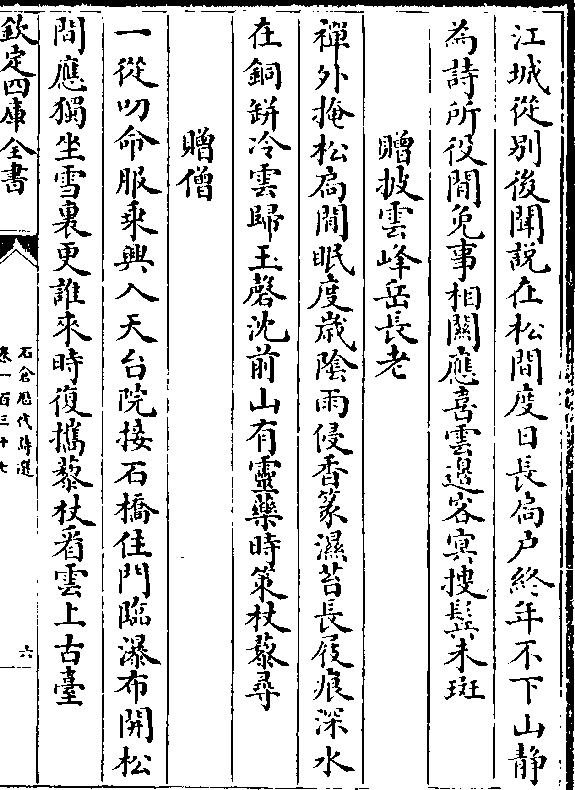 江城從别後聞説在松間度日長扄户終年不下山静
為詩所役間免事相關應喜雲邊客㝠搜鬂未斑
贈披雲峰岳長老
禪外掩松扄閒眠度嵗陰雨侵香篆濕苔長屐痕深水
在銅缾冷雲歸玉磬沈前山有靈藥時策杖藜尋
贈僧
一從叨命服乘興入天台院接石橋住門臨瀑布開松
間應獨坐雪裏更誰來時復攜藜杖看雲上古臺
欽定四庫全書
石倉歷代詩選
卷一百三十七
六